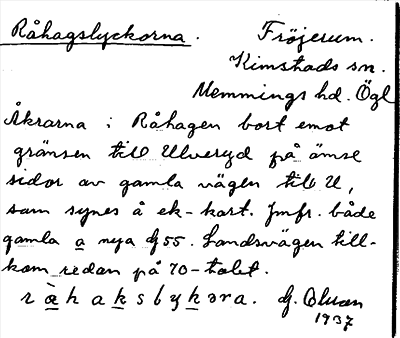 Råhagslyckorna. Fröjerum.
Kimstads sn.
Memmings hd. Ögl
Åkrarna i Råhagen bort emot
gränsen till Ulveryd på ömse
sidor av gamla vägen till U,
som synes å ek-kart. Jmfr. både
gamla a nya G55. Landsvägen till-
kom redan på 70-talet.
1937